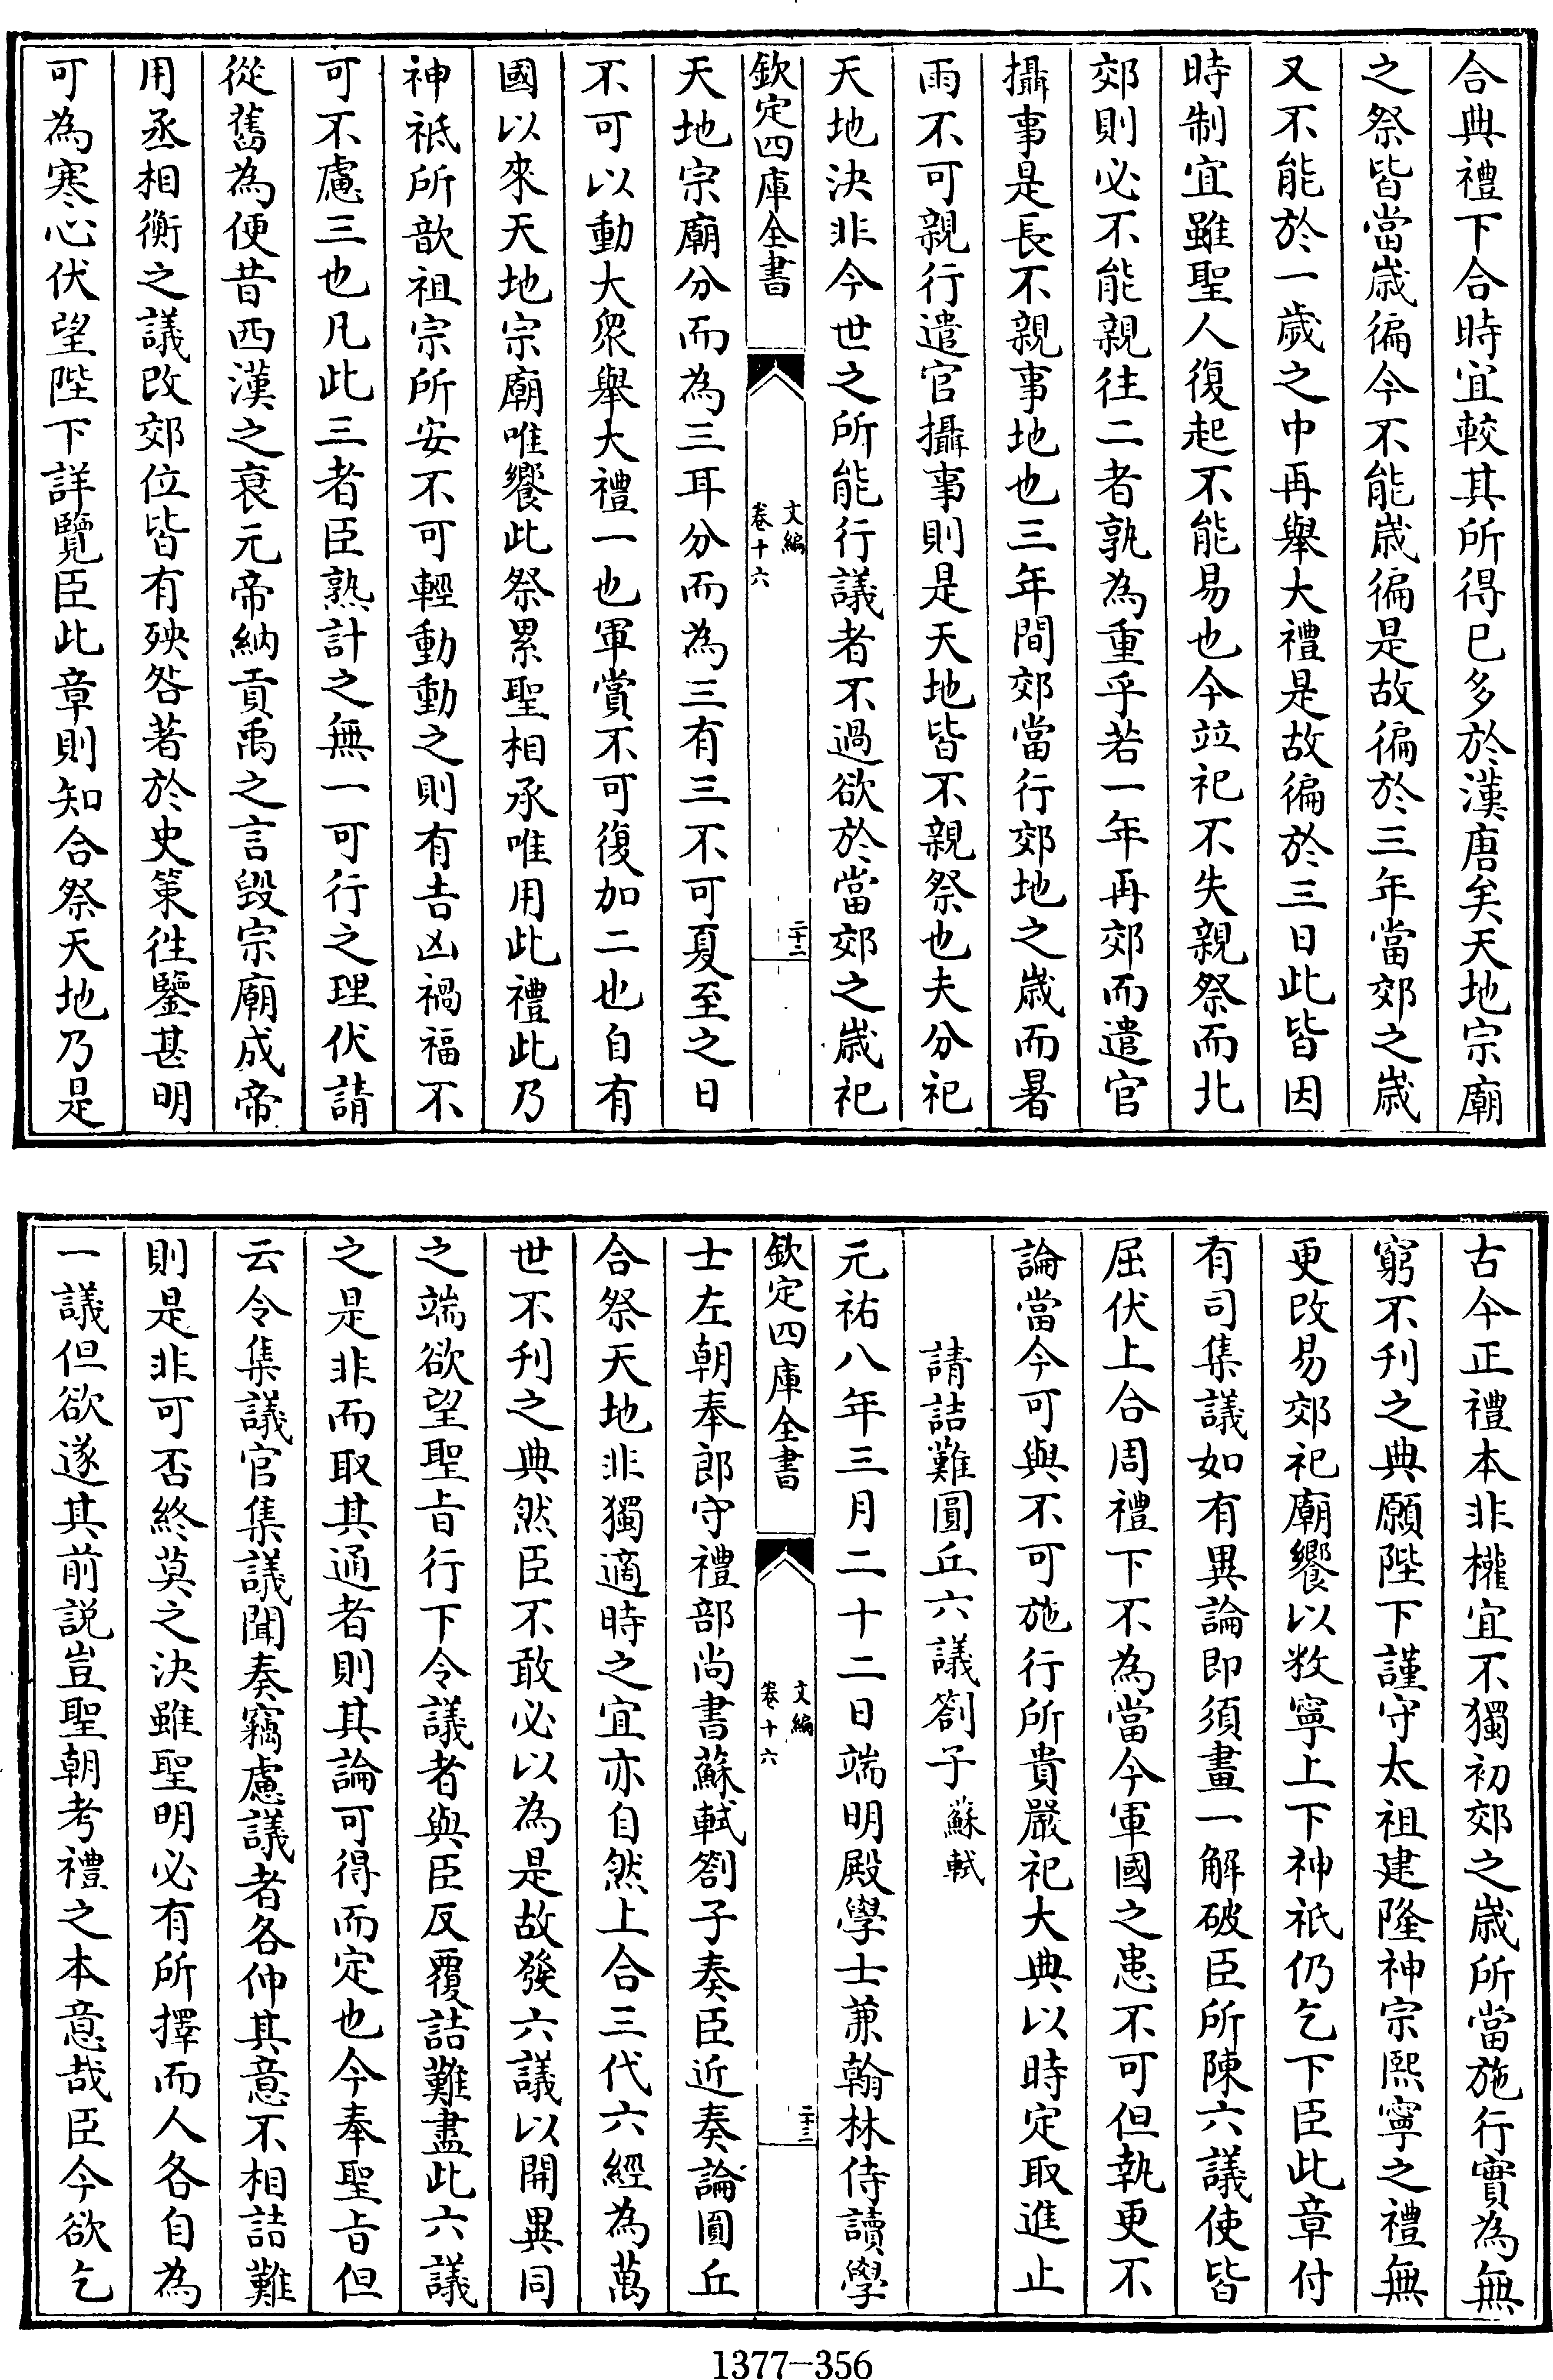 合典禮下合時宜較其所得已多於漢唐矣天地宗廟
之祭皆當歳徧今不能歳徧是故徧於三年當郊之歳
又不能於一歲之中再舉大禮是故徧於三日此皆因
時制宜雖聖人復起不能易也今竝祀不失親祭而北
郊則必不能親往二者孰為重乎若一年再郊而遣官
攝事是長不親事地也三年間郊當行郊地之歳而暑
雨不可親行遣官攝事則是天地皆不親祭也夫分祀
天地決非今世之所能行議者不過欲於當郊之歳祀
欽定四庫全書
文編
卷十六
二十二
天地宗廟分而為三耳分而為三有三不可夏至之日
不可以動大衆舉大禮一也軍賞不可復加二也自有
國以來天地宗廟唯饗此祭累聖相承唯用此禮此乃
神祇所歆祖宗所安不可輕動動之則有吉凶禍福不
可不慮三也凡此三者臣熟計之無一可行之理伏請
從舊為便昔西漢之衰元帝納貢禹之言毀宗廟成帝
用丞相衡之議改郊位皆有殃咎著於史策徃鑒甚明
可為寒心伏望陛下詳覽臣此章則知合祭天地乃是
古今正禮本非權宜不獨初郊之歳所當施行實為無
窮不刊之典願陛下謹守太祖建隆神宗熙寧之禮無
更改易郊祀廟饗以敉寧上下神祇仍乞下臣此章付
有司集議如有異論即須畫一解破臣所陳六議使皆
屈伏上合周禮下不為當今軍國之患不可但執更不
論當今可與不可施行所貴嚴祀大典以時定取進止
請詰難圓丘六議劄子 蘇軾
元祐八年三月二十二日端明殿學士兼翰林侍讀學
欽定四庫全書
文編
卷十六
二十三
士左朝奉郎守禮部尚書蘇軾劄子奏臣近奏論圓丘
合祭天地非獨適時之宜亦自然上合三代六經為萬
世不刊之典然臣不敢必以為是故發六議以開異同
之端欲望聖旨行下令議者與臣反覆詰難盡此六議
之是非而取其通者則其論可得而定也今奉聖旨但
云令集議官集議聞奏竊慮議者各伸其意不相詰難
則是非可否終莫之決雖聖明必有所擇而人各自為
一議但欲遂其前説豈聖朝考禮之本意哉臣今欲乞
1377-356